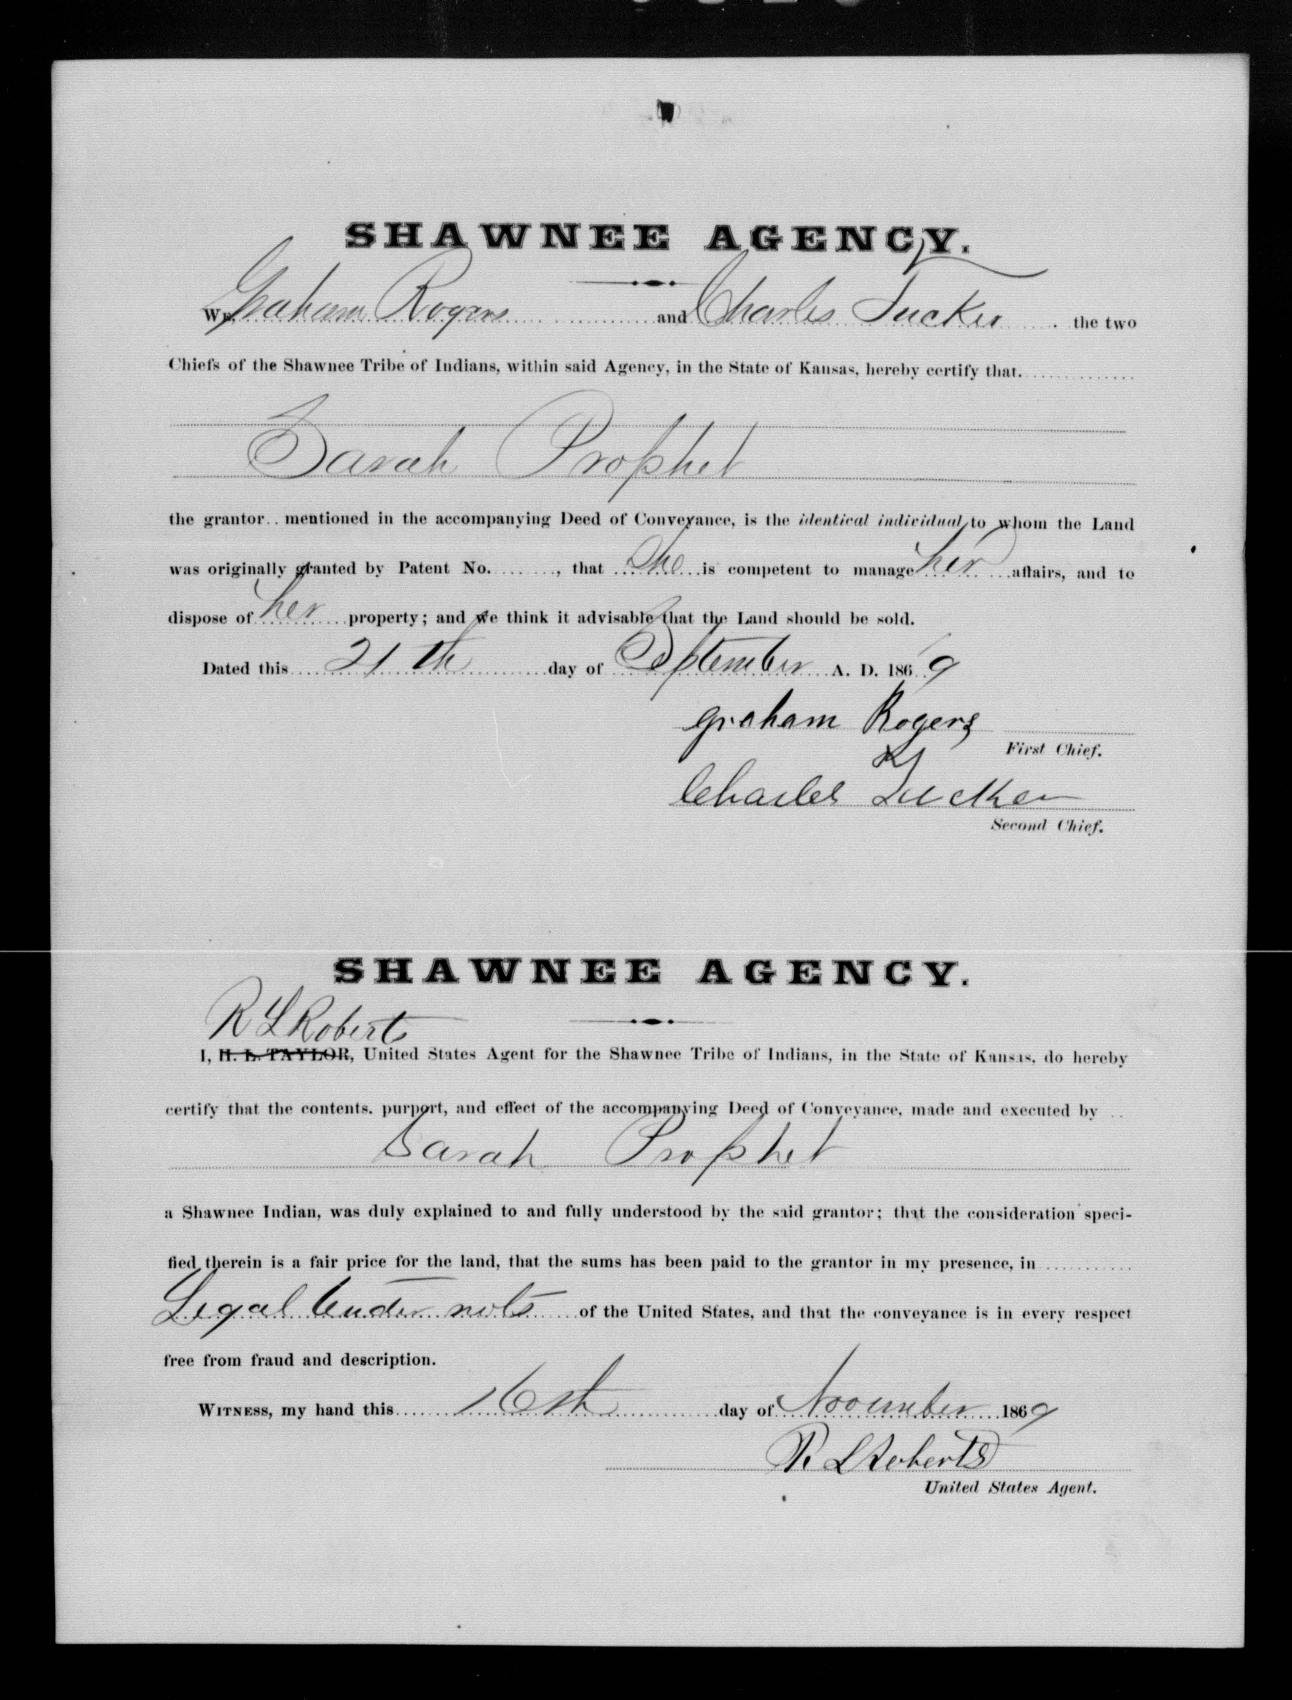 SHAWNEE AGENCY.
We, Graham Rogers and Charles Tucker the two
Chiefs of the Shawnee Tribe of Indians, within said Agency, in the State of Kansas, hereby certify that
Sarah Prophet
the grantor mentioned in the accompanying Deed of Conveyance, is the identical individual to whom the Land
was originally granted by Patent No. , that She is competent to manage her affairs, and to
dispose of her property; and we think it advisable that the Land should be sold.
Dated this 21th day of September A. D. 1869
Graham Rogers
First Chief.
Charles Tucker
Second Chief.
SHAWNEE AGENCY.
R L Roberts
I, H. L. TAYLOR, United States Agent for the Shawnee Tribe of Indians, in the State of Kansas, do hereby
certify that the contents, purport, and effect of the accompanying Deed of Conveyance, made and executed by
Sarah Prophet
a Shawnee Indian, was duly explained to and fully understood by the said grantor; that the consideration speci-
fied therein is a fair price for the land, that the sums has been paid to the grantor in my presence, in
Legal tender nots of the United States, and that the conveyance is in every respect
free from fraud and description.
WITNESS, my hand this 16th day of November 1869
R L Roberts
United States Agent.